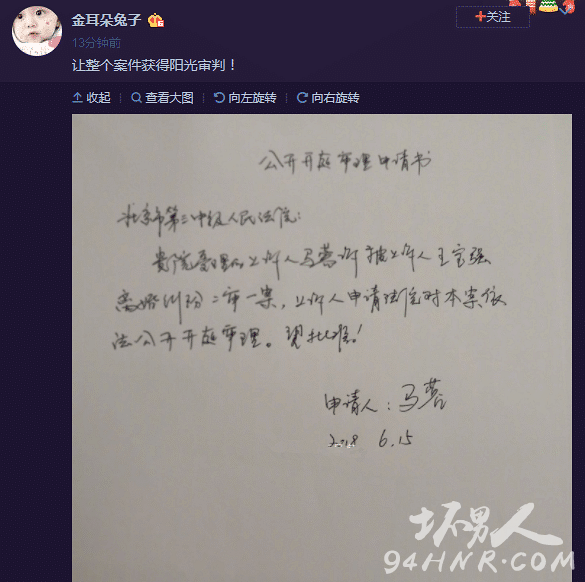 金耳朵兔子
+关注
13分钟前
让整个案件获得阳光审判！
收起
查看大图
向左旋转
向右旋转
公开开庭审理申请书
北京市第三中级人民法院：
贵院受理的上诉人马蓉诉被上诉人王宝强
离婚纠纷二审一案，上诉人申请法院对本案依
法公开开庭审理。望批准！
申请人：马蓉
2018 6.15
坏男人
94HNR.COM